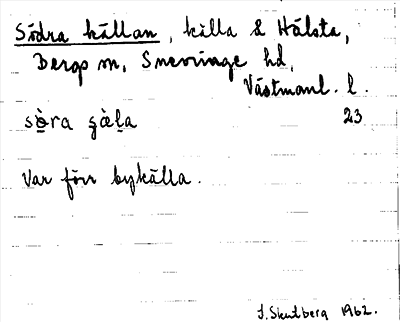 Södra källan, källa å Hälsta,
Bergs sn, Snevringe hd,
Västmanl. l.
sò̱ra ʂàl̠a 23
Var förr bykälla.
J. Skutberg 1962.